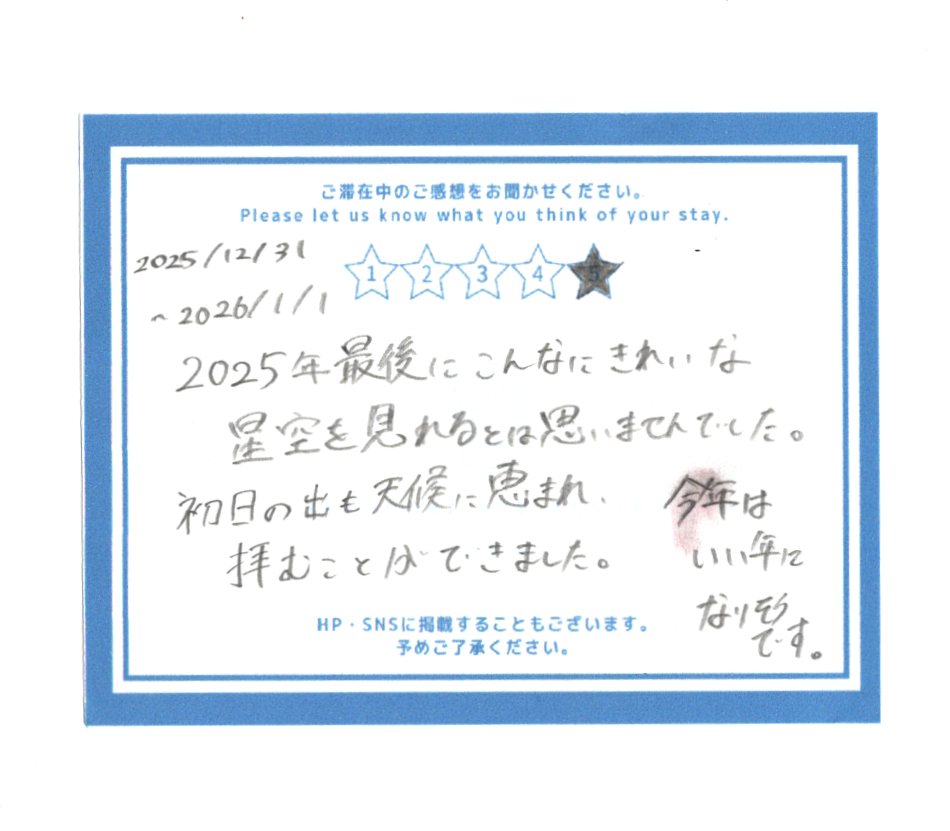 ご滞在中のご感想をお聞かせください。
Please let us know what you think of your stay.
2025/12/31
~2026/1/1
1 2 3 4 5
2025年最後にこんなにきれいな
星空を見れるとは思いませんでした。
初日の出も天候に恵まれ、
拝むことができました。
今年は
いい年に
なりそう
です。
HP・SNSに掲載することもございます。
予めご了承ください。